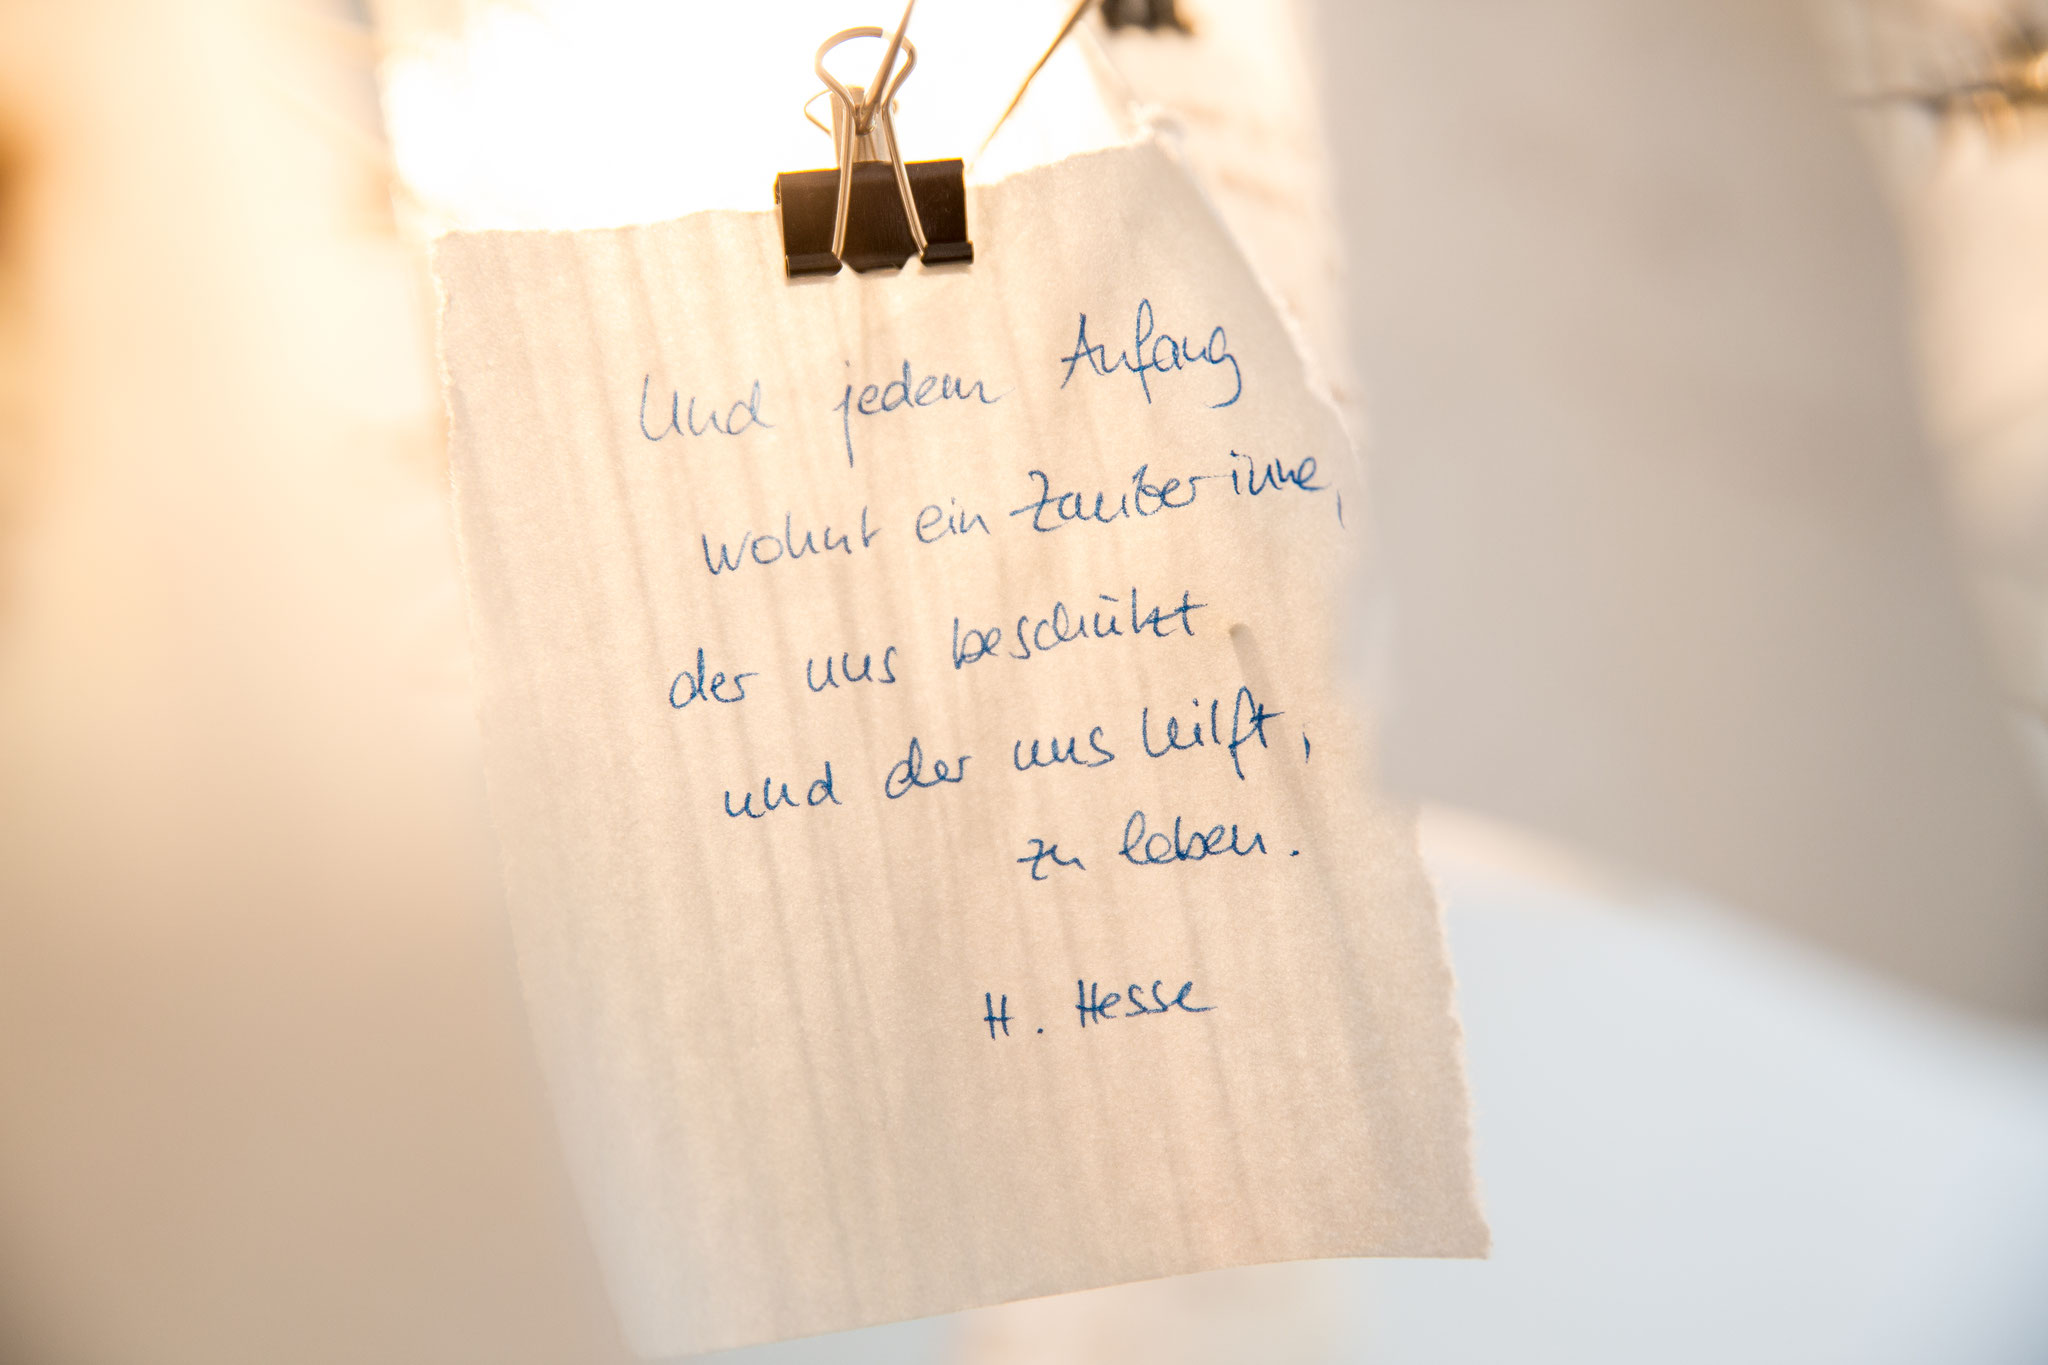 Und jedem Anfang
wohnt ein Zauber inne,
der uns beschützt
und der uns hilft,
zu leben.
H. Hesse